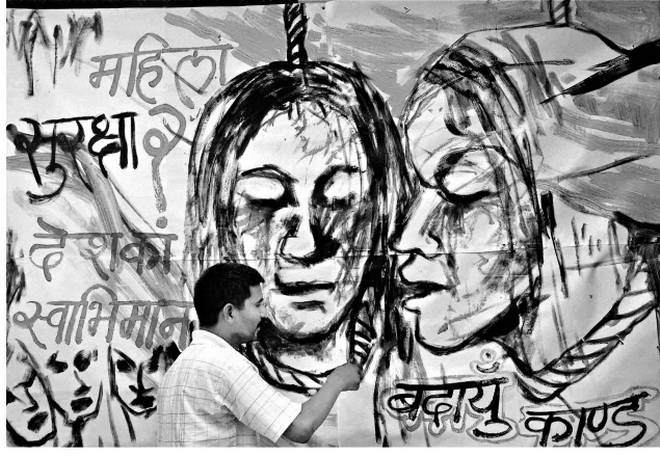 महिला
सुरक्षा ?
देशकां
स्वाभिमान
बदायुँ काण्ड